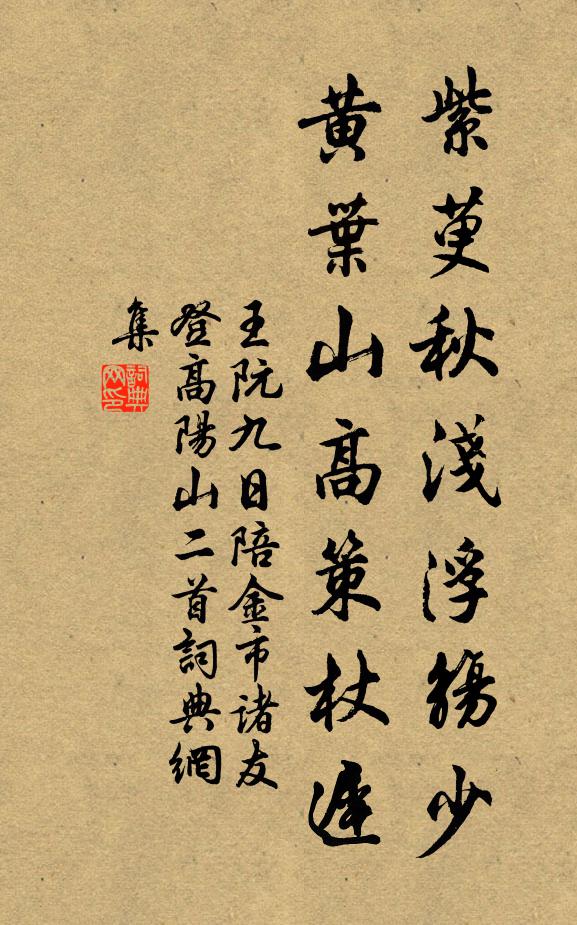 紫萸秋淺浮觴少
黃葉山高策杖遲
王阮九日陪金市諸友
登高陽山二首詞典網
集
詞典
网印